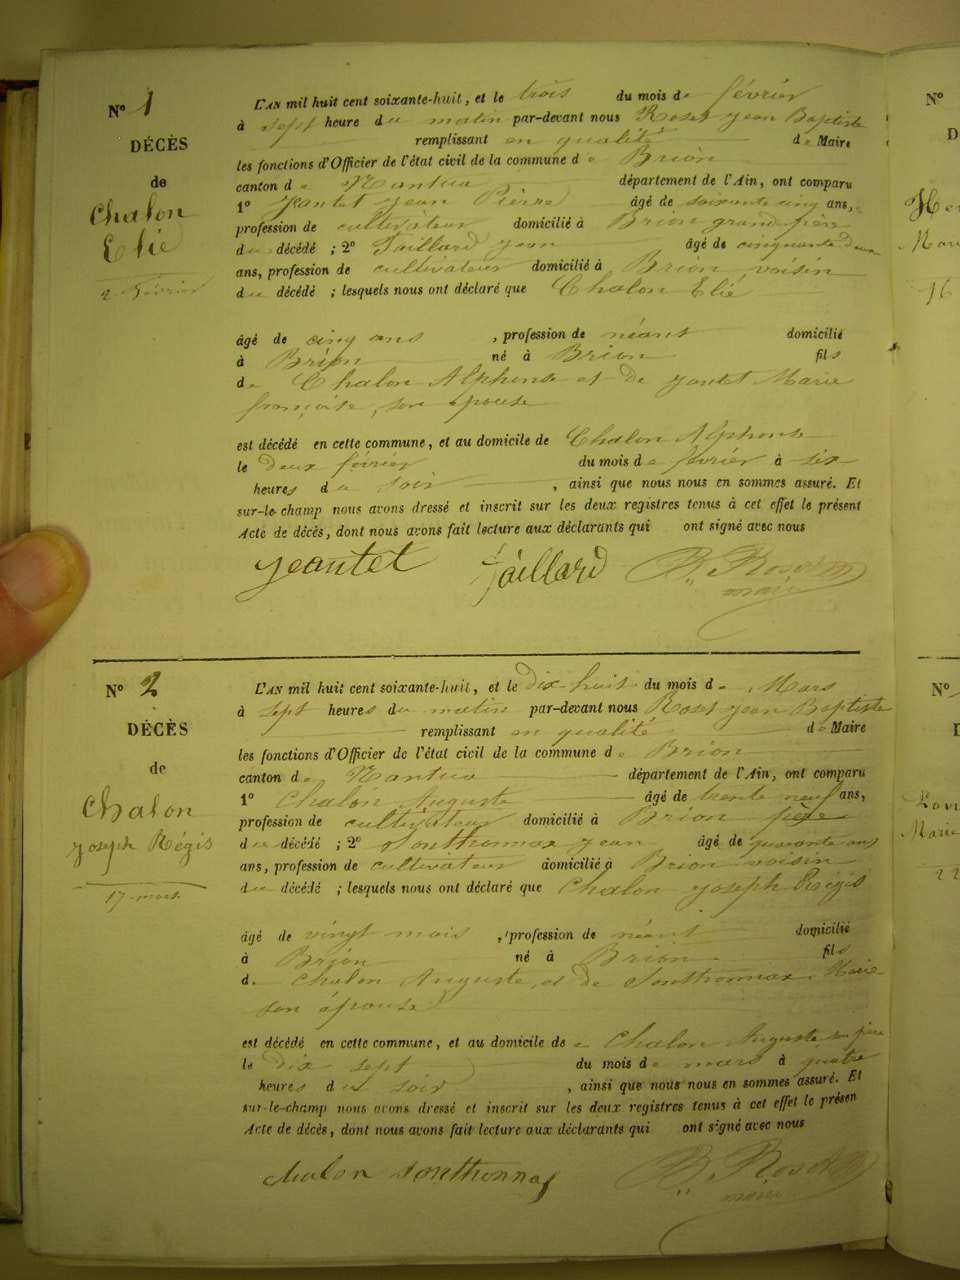 N° 1
DÉCÈS
de
Chalon
Elie
2 Février
L'AN mil huit cent soixante-huit, et le trois du mois de février
à sept heure du matin par-devant nous Roset Jean Baptiste
remplissant en qualité de Maire
les fonctions d'Officier de l'état civil de la commune de Brion
canton de Nantua département de l'Ain, ont comparu
1° Jeantet Jean Pierre âgé de soixante cinq ans,
profession de cultivateur domicilié à Brion grand-père
du décédé ; 2° Gaillard Jean âgé de cinquante deux
ans, profession de cultivateur domicilié à Brion voisin
du décédé ; lesquels nous ont déclaré que Chalon Elie
âgé de cinq ans , profession de néant domicilié
à Brion né à Brion fils
de Chalon Alphonse et de Jantet Marie
françoise, son épouse
est décédé en cette commune, et au domicile de Chalon Alphonse
le deux février du mois de février à six
heures du soir , ainsi que nous nous en sommes assuré. Et
sur-le-champ nous avons dressé et inscrit sur les deux registres tenus à cet effet le présent
Acte de décès, dont nous avons fait lecture aux déclarants qui ont signé avec nous
Jeantet Gaillard Bte Roset
maire
N° 2
DÉCÈS
de
Chalon
Joseph Régis
17 mars
L'AN mil huit cent soixante-huit, et le dix-huit du mois de Mars
à sept heures du matin par-devant nous Roset Jean Baptiste
remplissant en qualité de Maire
les fonctions d'Officier de l'état civil de la commune de Brion
canton de Nantua département de l'Ain, ont comparu
1° Chalon Auguste âgé de trente neuf ans,
profession de cultivateur domicilié à Brion père
du décédé ; 2° Sonthonnax Jean âgé de quarante ans
ans, profession de cultivateur domicilié à Brion voisin
du décédé ; lesquels nous ont déclaré que Chalon Joseph Régis
âgé de vingt mois , profession de néant domicilié
à Brion né à Brion fils
de Chalon Auguste, et de Sonthonnax Marie
son épouse
est décédé en cette commune, et au domicile de Chalon Auguste son père
le dix sept du mois de mars à quatre
heures du soir , ainsi que nous nous en sommes assuré. Et
sur-le-champ nous avons dressé et inscrit sur les deux registres tenus à cet effet le présen
Acte de décès, dont nous avons fait lecture aux déclarants qui ont signé avec nous
chalon Sonthonnax Bte Roset
maire